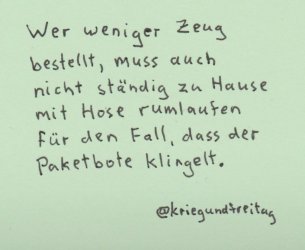 Wer weniger Zeug
bestellt, muss auch
nicht ständig zu Hause
mit Hose rumlaufen
für den Fall, dass der
Paketbote klingelt.
@kriegundfreitag